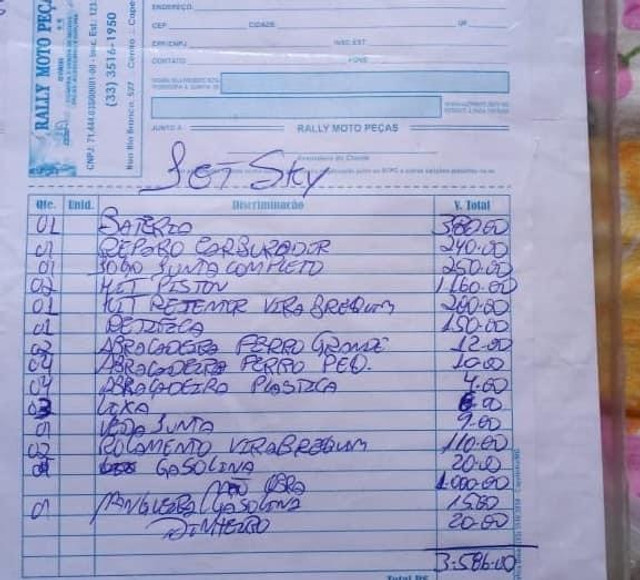 RALLY MOTO PEÇAS
(33) 3516-1950
ENDEREÇO
CEP CIDADE UF
CPF/CNPJ INSC EST
CONTATO FONE
JUNTO A RALLY MOTO PEÇAS
Assinatura do Cliente
JET SKY
Qte. Unid. Discriminação V. Total
01 BATERIA 380.00
01 REPARO CARBURADOR 240.00
01 JOGO JUNTA COMPLETO 250.00
02 KIT PISTON 1.160.00
01 KIT RETENTOR VIRABREQUIM 200.00
01 RETIFICA 150.00
02 ABRACADEIRA FERRO GRANDE 12.00
04 ABRACADEIRA FERRO PEQ. 10.00
04 ABRACADEIRA PLASTICA 4.00
LIXA 6.00
01 VEDA JUNTA 9.00
02 ROLAMENTO VIRABREQUIM 110.00
GASOLINA 20.00
MÃO OBRA 1.000.00
01 MANGUEIRA GASOLINA 15.00
DINHEIRO 20.00
3.586.00
Total R$